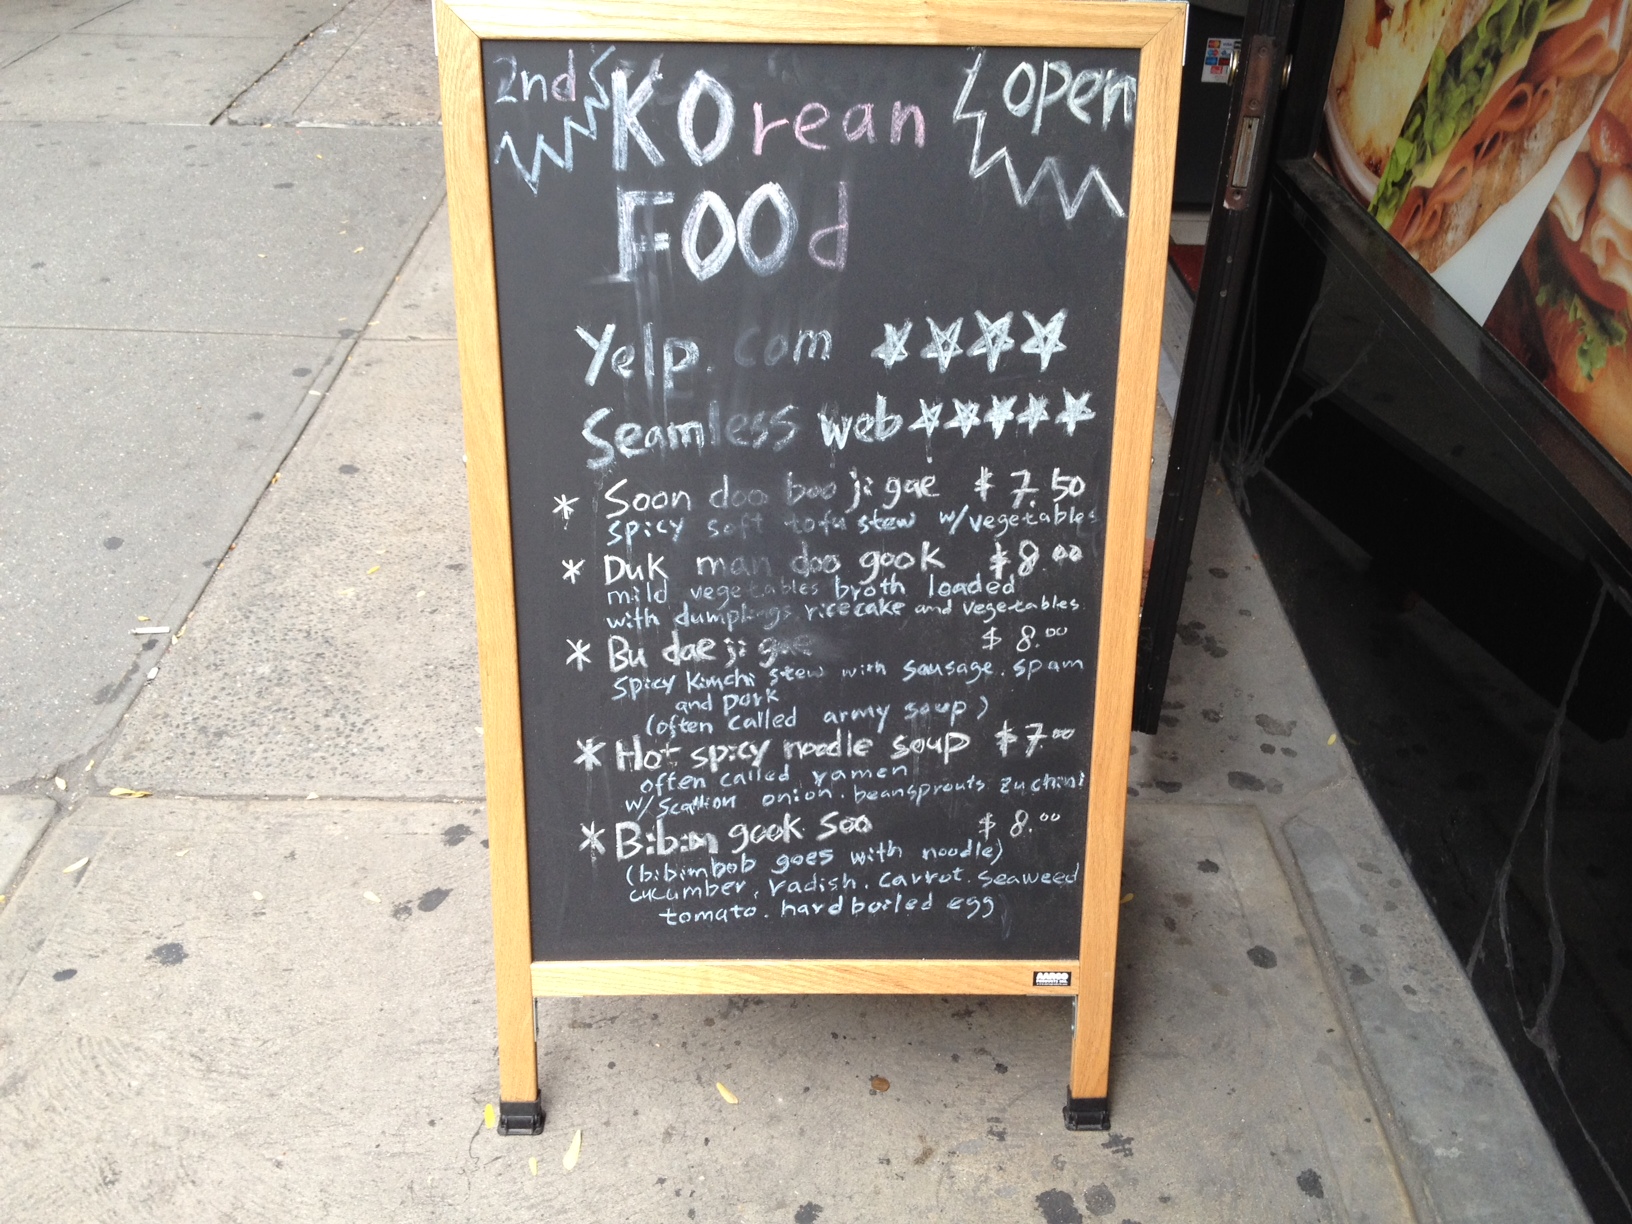 2nd KOrean open
FOOd
Yelp.com
Seamless web
* Soon doo boo ji gae $7.50
spicy soft tofu stew w/vegetables
* Duk man doo gook $8.00
mild vegetables broth loaded
with dumplings ricecake and vegetables
* Bu dae ji gae $8.00
spicy kimchi stew with sausage. spam
and pork
(often called army soup)
* Hot spicy noodle soup $7.00
often called ramen
w/scallion onion. beansprouts zuchini
* Bibim gook soo $8.00
(bibimbob goes with noodle)
cucumber, radish. carrot. seaweed
tomato. hard boiled egg
AARCO